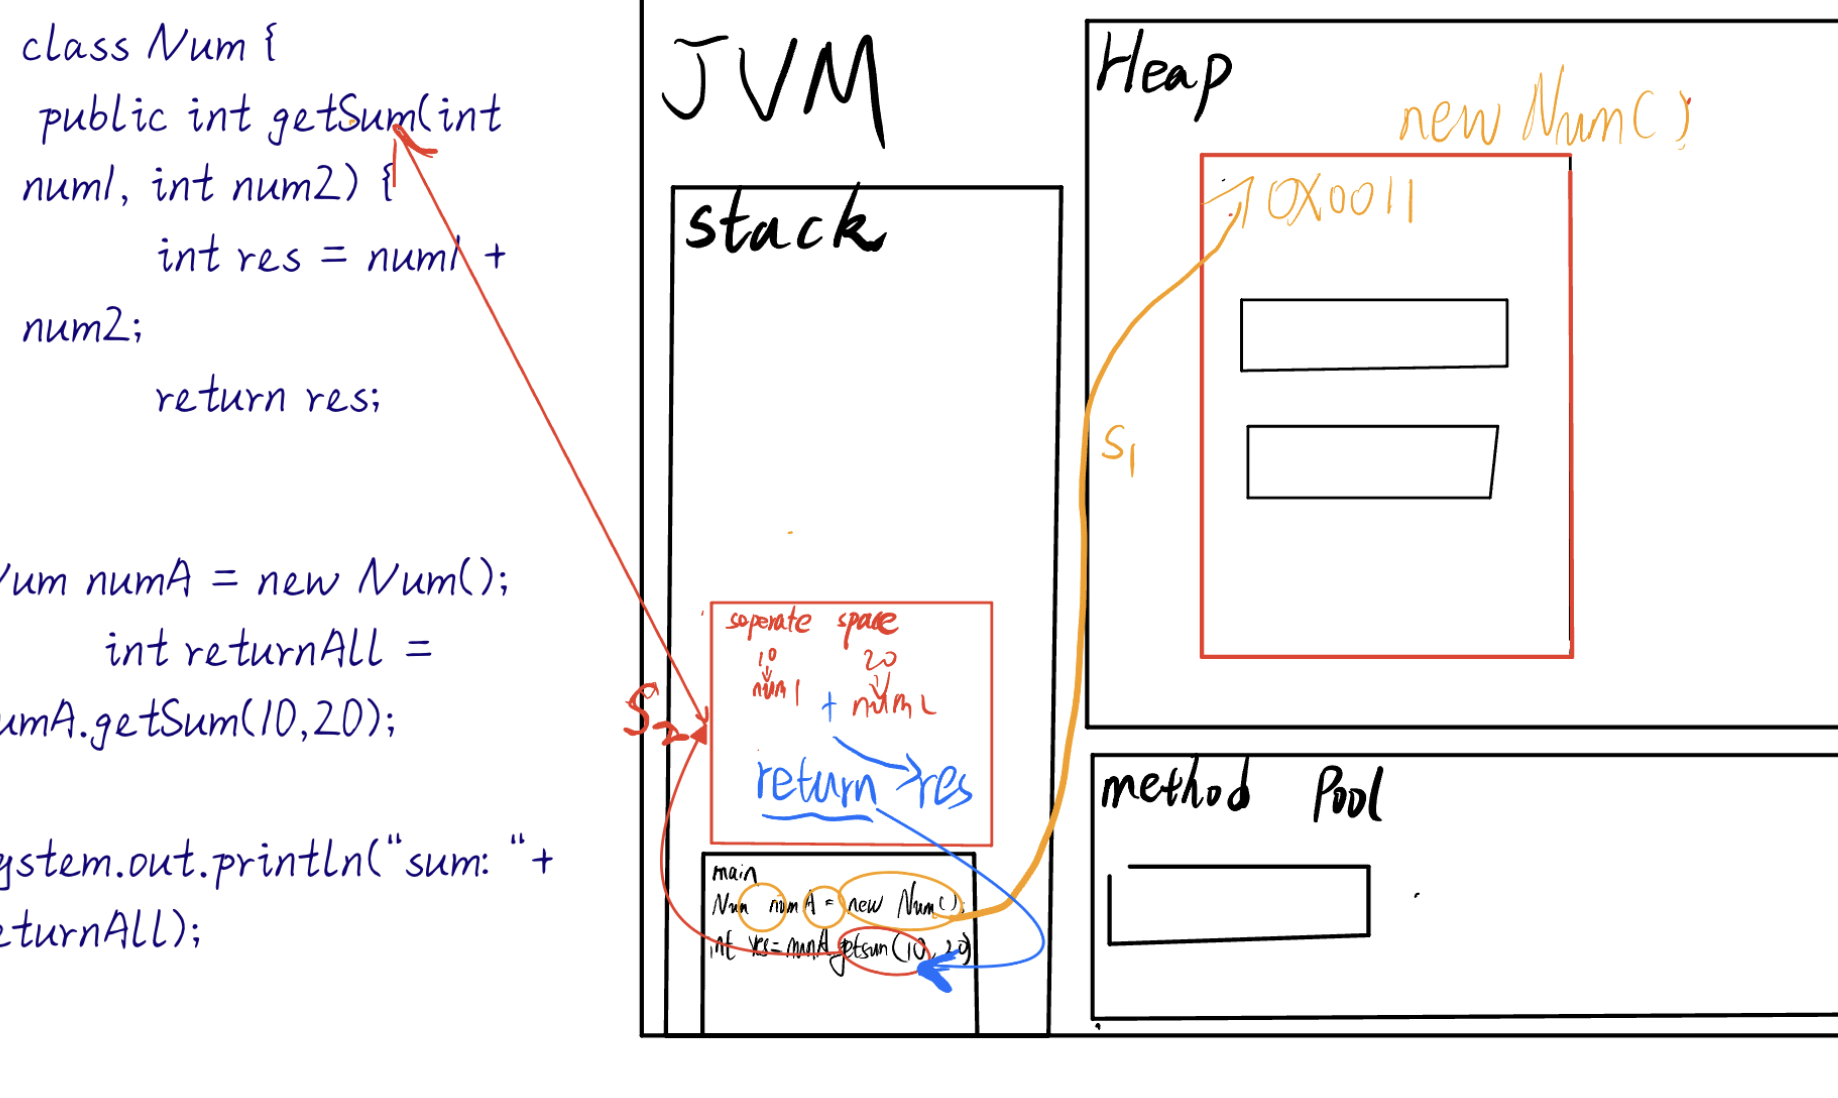 class Num {
public int getSum(int
num1, int num2) {
int res = num1 +
num2;
return res;
Num numA = new Num();
int returnAll =
umA.getSum(10,20);
ystem.out.println("sum: "+
eturnAll);
JVM
stack
S2
seperate space
10 20
num1 + num2
return res
main
Num numA = new Num();
int res=numA getsum(10,20)
Heap
new Num()
0X0011
S1
method Pool